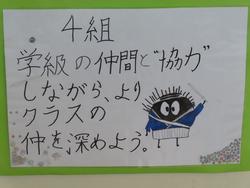 4組
学級の仲間と"協力"
しながら、より
クラスの
仲を深めよう。